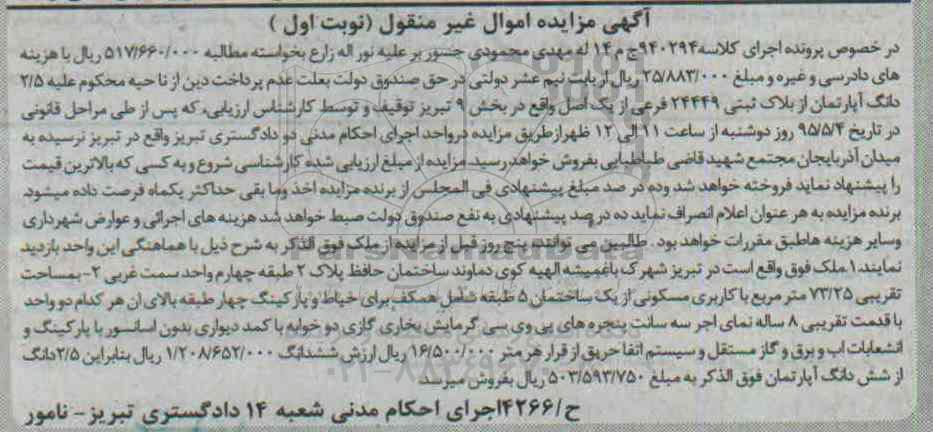 آگهی مزایده اموال غیر منقول (نوبت اول )
در خصوص پرونده اجرای کلاسه۹۴۰۲۹۴ج م ۱۴ له مهدی محمودی جسور بر علیه نور اله زارع بخواسته مطالبه ۵۱۷/۶۶۰/۰۰۰ ریال با هزینه
های دادرسی و غیره و مبلغ ۲۵/۸۸۳/۰۰۰ ریال از بابت نیم عشر دولتی در حق صندوق دولت بعلت عدم پرداخت دین از ناحیه محکوم علیه ۲/۵
دانگ آپارتمان از پلاک ثبتی ۲۴۴۴۹ فرعی از یک اصل واقع در بخش ۹ تبریز توقیف و توسط کارشناس ارزیابی، که پس از طی مراحل قانونی
در تاریخ ۹۵/۵/۴ روز دوشنبه از ساعت ۱۱ الی ۱۲ ظهر ازطریق مزایده در واحد اجرای احکام مدنی دو دادگستری تبریز واقع در تبریز نرسیده به
میدان آذربایجان مجتمع شهید قاضی طباطبایی بفروش خواهد رسید. مزایده از مبلغ ارزیابی شده کارشناسی شروع و به کسی که بالاترین قیمت
را پیشنهاد نماید فروخته خواهد شد وده در صد مبلغ پیشنهادی فی المجلس از برنده مزایده اخذ وما بقی حداکثر یکماه فرصت داده میشود.
برنده مزایده به هر عنوان اعلام انصراف نماید ده در صد پیشنهادی به نفع صندوق دولت ضبط خواهد شد هزینه های اجرائی و عوارض شهرداری
وسایر هزینه هاطبق مقررات خواهد بود . طالبین می توانند پنج روز قبل از مزایده از ملک فوق الذکر به شرح ذیل با هماهنگی این واحد بازدید
نمایند.۱.ملک فوق واقع است در تبریز شهرک باغمیشه الهیه کوی دماوند ساختمان حافظ پلاک ۲ طبقه چهارم واحد سمت غربی ۲- بمساحت
تقریبی ۷۳/۲۵ متر مربع با کاربری مسکونی از یک ساختمان ۵ طبقه شامل همکف برای حیاط و پارکینگ چهار طبقه بالای ان هر کدام دو واحد
با قدمت تقریبی ۸ ساله نمای اجر سه سانت پنجره های پی وی سی گرمایش بخاری گازی دو خوابه با کمد دیواری بدون اسانسور با پارکینگ و
انشعابات اب و برق و گاز مستقل و سیستم اتفا حریق از قرار هر متر ۱۶/۵۰۰/۰۰۰ ریال ارزش ششدانگ ۱/۲۰۸/۶۵۲/۰۰۰ ریال بنابراین ۲/۵دانگ
از شش دانگ آپارتمان فوق الذکر به مبلغ ۵۰۳/۵۹۳/۷۵۰ ریال بفروش میرسد
ح/۴۲۶۶اجرای احکام مدنی شعبه ۱۴ دادگستری تبریز- نامور
ParsNamadData
۰۲۱-۸۸۳۴۹۶۷۰